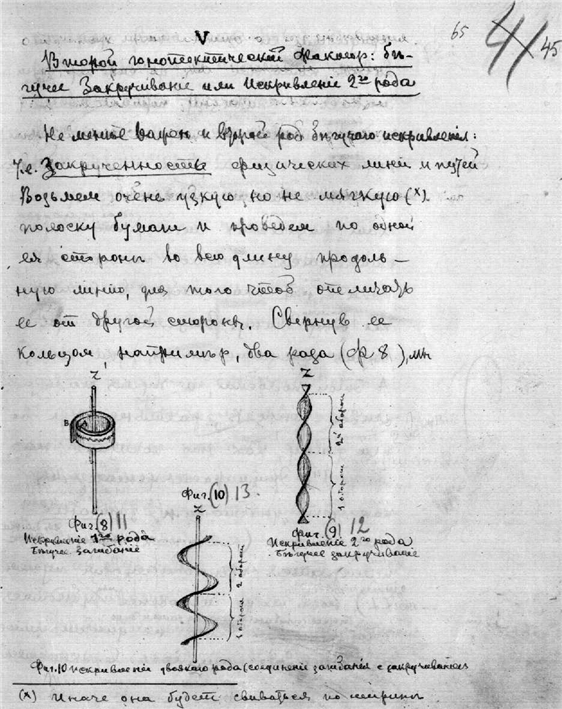 65
41
45
V
Второй гонотектическiй фактор: бѣ-
гучее Закручиванiе или Искривленiе 2го рода
Не менѣе важен и второй род бѣгучаго искривленiя:
т.е. Закрученность физических линiй и путей
Возьмем очень узкую, но не мягкую (x)
полоску бумаги и проведем по одной
ея стороне во всю длину продоль-
ную линiю, для того чтоб отличать
ее от другой стороны. Свернув ее
кольцом, например, два раза (ф 8), мы
Z
Z
B
2й оборот
1 оборот
Фиг. (10) 13.
Z
Фиг. (8) 11
Искривленiе 1го рода
Бѣгучее загибанiе
Фиг. (9) 12
Искривленiе 2го рода
Бѣгучее закручиванiе
2 оборот
1 оборот
Фиг. 10 Искривленiе двоякаго рода (соединенiе загибанiя с закручиванiем
(x) Иначе она будет свиваться по ширине